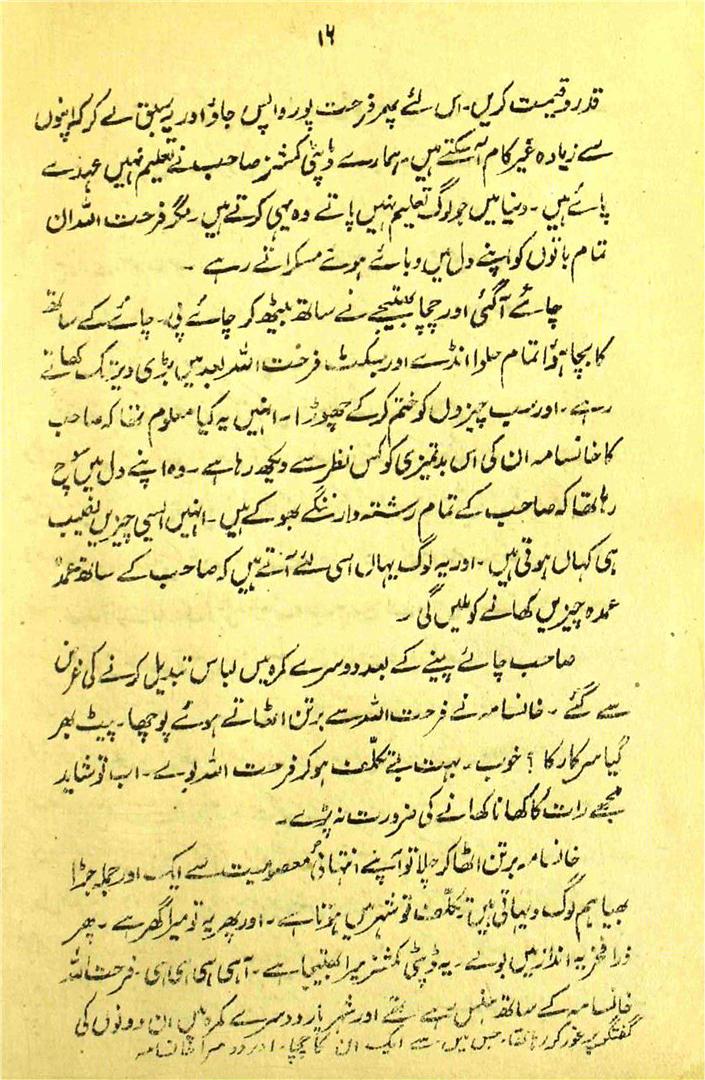 ۱۶
قدر و قیمت کریں۔ اس لئے پھر فرحت پور واپس جاؤ اور یہ سبق لے کر کہ اپنوں
سے زیادہ غیر کام آ سکتے ہیں۔ ہمارے ڈپٹی کمشنر صاحب نے تعلیم نہیں عہدے
پائے ہیں۔ دنیا میں جو لوگ تعلیم نہیں پاتے وہ یہی کرتے ہیں۔ مگر فرحت اللہ ان
تمام باتوں کو اپنے دل میں دبائے ہوئے مسکراتے رہے ۔
چائے آ گئی اور چچا بھتیجے نے ساتھ بیٹھ کر چائے پی۔ چائے کے ساتھ
کا بچا ہوا تمام حلوا انڈے اور بسکٹ فرحت اللہ بعد میں بڑی دیر تک کھاتے
رہے۔ اور سب چیزوں کو ختم کر کے چھوڑا۔ انہیں یہ کیا معلوم تھا کہ صاحب
کا خانسامہ ان کی اس بدتمیزی کو کس نظر سے دیکھ رہا ہے۔ وہ اپنے دل میں سوچ
رہا تھا کہ صاحب کے تمام رشتہ دار ننگے بھوکے ہیں۔ انہیں ایسی چیزیں نصیب
ہی کہاں ہوتی ہیں۔ اور یہ لوگ یہاں اسی لئے آتے ہیں کہ صاحب کے ساتھ عمدہ
عمدہ چیزیں کھانے کو ملیں گی ۔
صاحب چائے پینے کے بعد دوسرے کمرہ میں لباس تبدیل کرنے کی غرض
سے گئے ۔ خانسامہ نے فرحت اللہ سے برتن اٹھاتے ہوئے پوچھا۔ پیٹ بھر
گیا سرکار کا ؟ خوب۔ بہت بے تکلف ہو کر فرحت اللہ بولے۔ اب تو شاید
مجھے رات کا کھانا کھانے کی ضرورت نہ پڑے۔
خانسامہ برتن اٹھا کر چلا تو آپ نے انتہائی معصومیت سے ایک اور جملہ جڑا
بھیا ہم لوگ دیہاتی ہیں تکلف تو شہر میں ہوتا ہے۔ اور پھر یہ تو میرا گھر ہے ۔ پھر
ذرا فخریہ انداز میں بولے۔ یہ ڈپٹی کمشنر میرا بھتیجا ہے۔ آہی ہی ہی ہی۔ فرحت اللہ
خانسامہ کے ساتھ ہنس رہے تھے اور شہر یار دوسرے کمرہ میں ان دونوں کی
گفتگو پر غور کر رہا تھا، جس میں سے ایک ان کا چچا۔ اور دوسرا خانسامہ